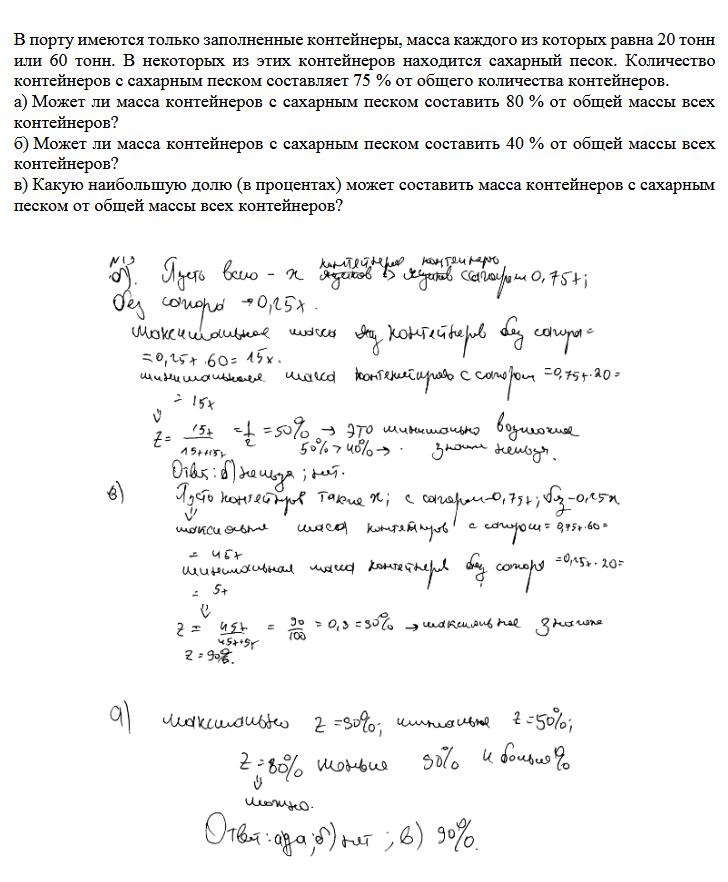 В порту имеются только заполненные контейнеры, масса каждого из которых равна 20 тонн
или 60 тонн. В некоторых из этих контейнеров находится сахарный песок. Количество
контейнеров с сахарным песком составляет 75 % от общего количества контейнеров.
а) Может ли масса контейнеров с сахарным песком составить 80 % от общей массы всех
контейнеров?
б) Может ли масса контейнеров с сахарным песком составить 40 % от общей массы всех
контейнеров?
в) Какую наибольшую долю (в процентах) может составить масса контейнеров с сахарным
песком от общей массы всех контейнеров?
N13 контейнеров контейнеров
б). Пусть всего - x с сахаром 0,75x;
без сахара → 0,25x.
Максимальная масса контейнеров без сахара =
= 0,25x · 60 = 15x.
минимальная масса контейнеров с сахаром = 0,75x · 20 =
= 15x
⇓
z = 15x/15x+15x = 1/2 = 50% → это минимально возможное
50% > 40% → значит нельзя.
Ответ: б) нельзя; нет.
в) Пусть контейнеров также x; с сахаром - 0,75x; без - 0,25x
⇓
максимальная масса контейнеров с сахаром = 0,75x · 60 =
= 45x
минимальная масса контейнеров без сахара = 0,25x · 20 =
= 5x
⇓
z = 45x/45x+5x = 90/100 = 0,9 = 90% → максимальное значение
z = 90%.
а) максимально z = 90%; минимально z = 50%;
z = 80% меньше 90% и больше %
⇓
можно.
Ответ: а) да; б) нет; в) 90%.